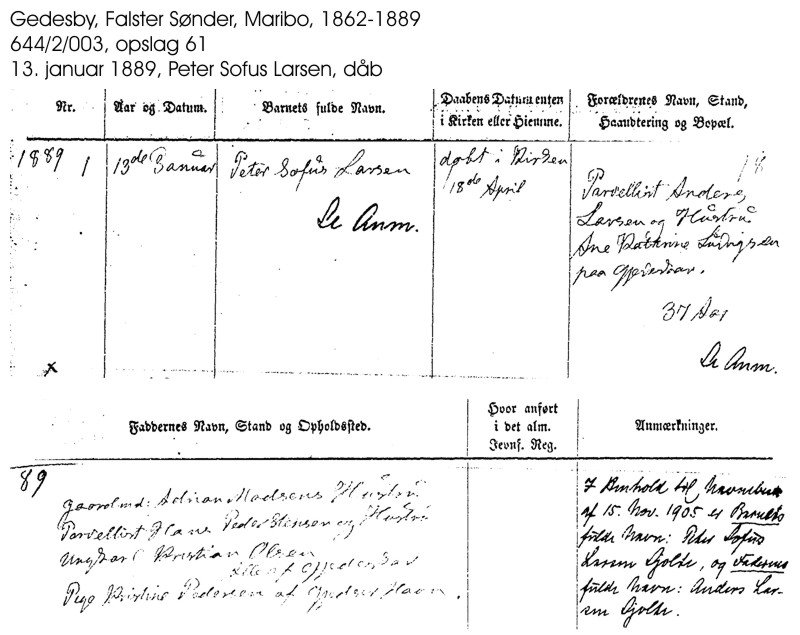 Gedesby, Falster Sønder, Maribo, 1862-1889
644/2/003, opslag 61
13. januar 1889, Peter Sofus Larsen, dåb
Nr.
Aar og Datum.
Barnets fulde Navn.
Daabens Datum enten
i Kirken eller Hjemme.
Forældrenes Navn, Stand,
Haandtering og Bopæl.
1889 1
13de Januar
Peter Sofus Larsen
Se Anm.
døbt i Kirken
18de April
18
Parcellist Anders
Larsen og Hustru
Ane Kathrine Ludvigsen
paa
37 Aar
Se Anm.
x
Faddernes Navn, Stand og Opholdssted.
Hvor anført
i det alm.
Jevnf. Reg.
Anmærkninger.
89
Gaardmd: Adrian Madsens Hustru
Parcellist Hans Peder Stensen og Hustru
Ungkarl Kristian Olsen
alle af
Pige Kristine Pedersen af
I Henhold til Navnebevis
af 15. Nov. 1905 er Barnets
fulde Navn: Peter Sofus
Larsen Gjolde, og Faderens
fulde Navn: Anders Lar-
sen Gjolde.